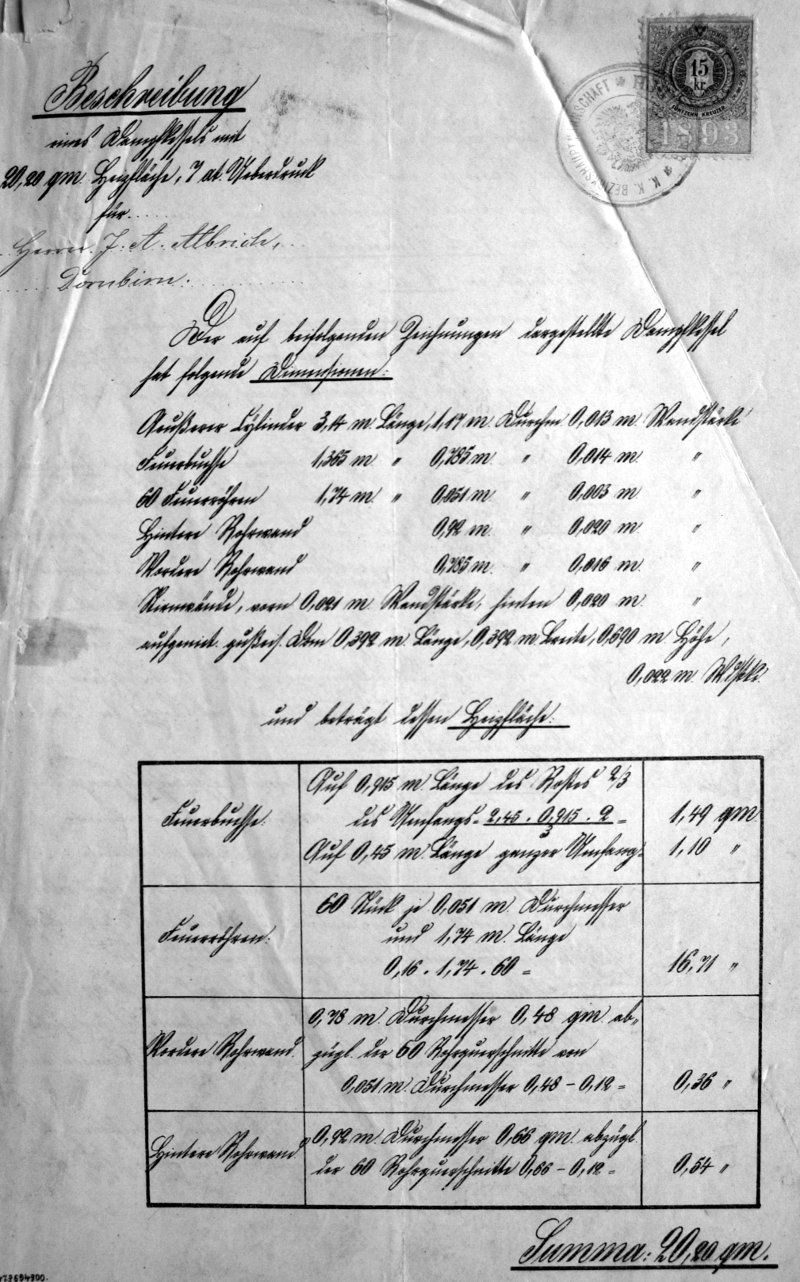 Beschreibung
eines Dampfkessels mit
20,20 qm. Heizfläche, 7 at. Ueberdruck
für
Herrn J. A. Albrich,
Dornbirn.
15
kr.
FÜNFZEHN KREUZER
1893
K. K. BEZIRKSHAUPTMANNSCHAFT
Der auf beifolgenden Zeichnungen dargestellte Dampfkessel
hat folgende Dimensionen:
Aeußerer Cylinder 3,14 m. Länge, 1,17 m. Durchm 0,013 m. Wandstärke
Feuerbuchse 1,365 m. " 0,785 m. " 0,014 m. "
60 Feuerröhren 1,74 m. " 0,051 m. " 0,003 m. "
Hintere Rohrwand 0,92 m. " 0,020 m. "
Vordere Rohrwand 0,785 m. " 0,016 m. "
Stirnwände, vorn 0,021 m. Wandstärke, hinten 0,020 m. "
aufgeniet. gußeis. Dom 0,392 m. Länge, 0,392 m. Breite, 0,690 m Höhe,
0,022 m. Wdstke.
und beträgt dessen Heizfläche:
Feuerbuchse.
Auf 0,915 m Länge des Rostes 2/3
des Umfangs = 2,45 . 0,915 . 2 =
3
1,49 qm
Auf 0,45 m. Länge ganzer Umfang:
1,10 "
Feuerröhren:
60 Stück je 0,051 m. Durchmesser
und 1,74 m. Länge
0,16 . 1,74 . 60 =
16,71 "
Vordere Rohrwand.
0,78 m. Durchmesser 0,48 qm ab-
zügl. der 60 Rohrquerschnitte von
0,051 m. Durchmesser 0,48 - 0,12 =
0,36 "
Hintere Rohrwand
0,92 m. Durchmesser 0,66 qm. abzügl.
der 60 Rohrquerschnitte 0,66 - 0,12 =
0,54 "
Summa: 20,20 qm.